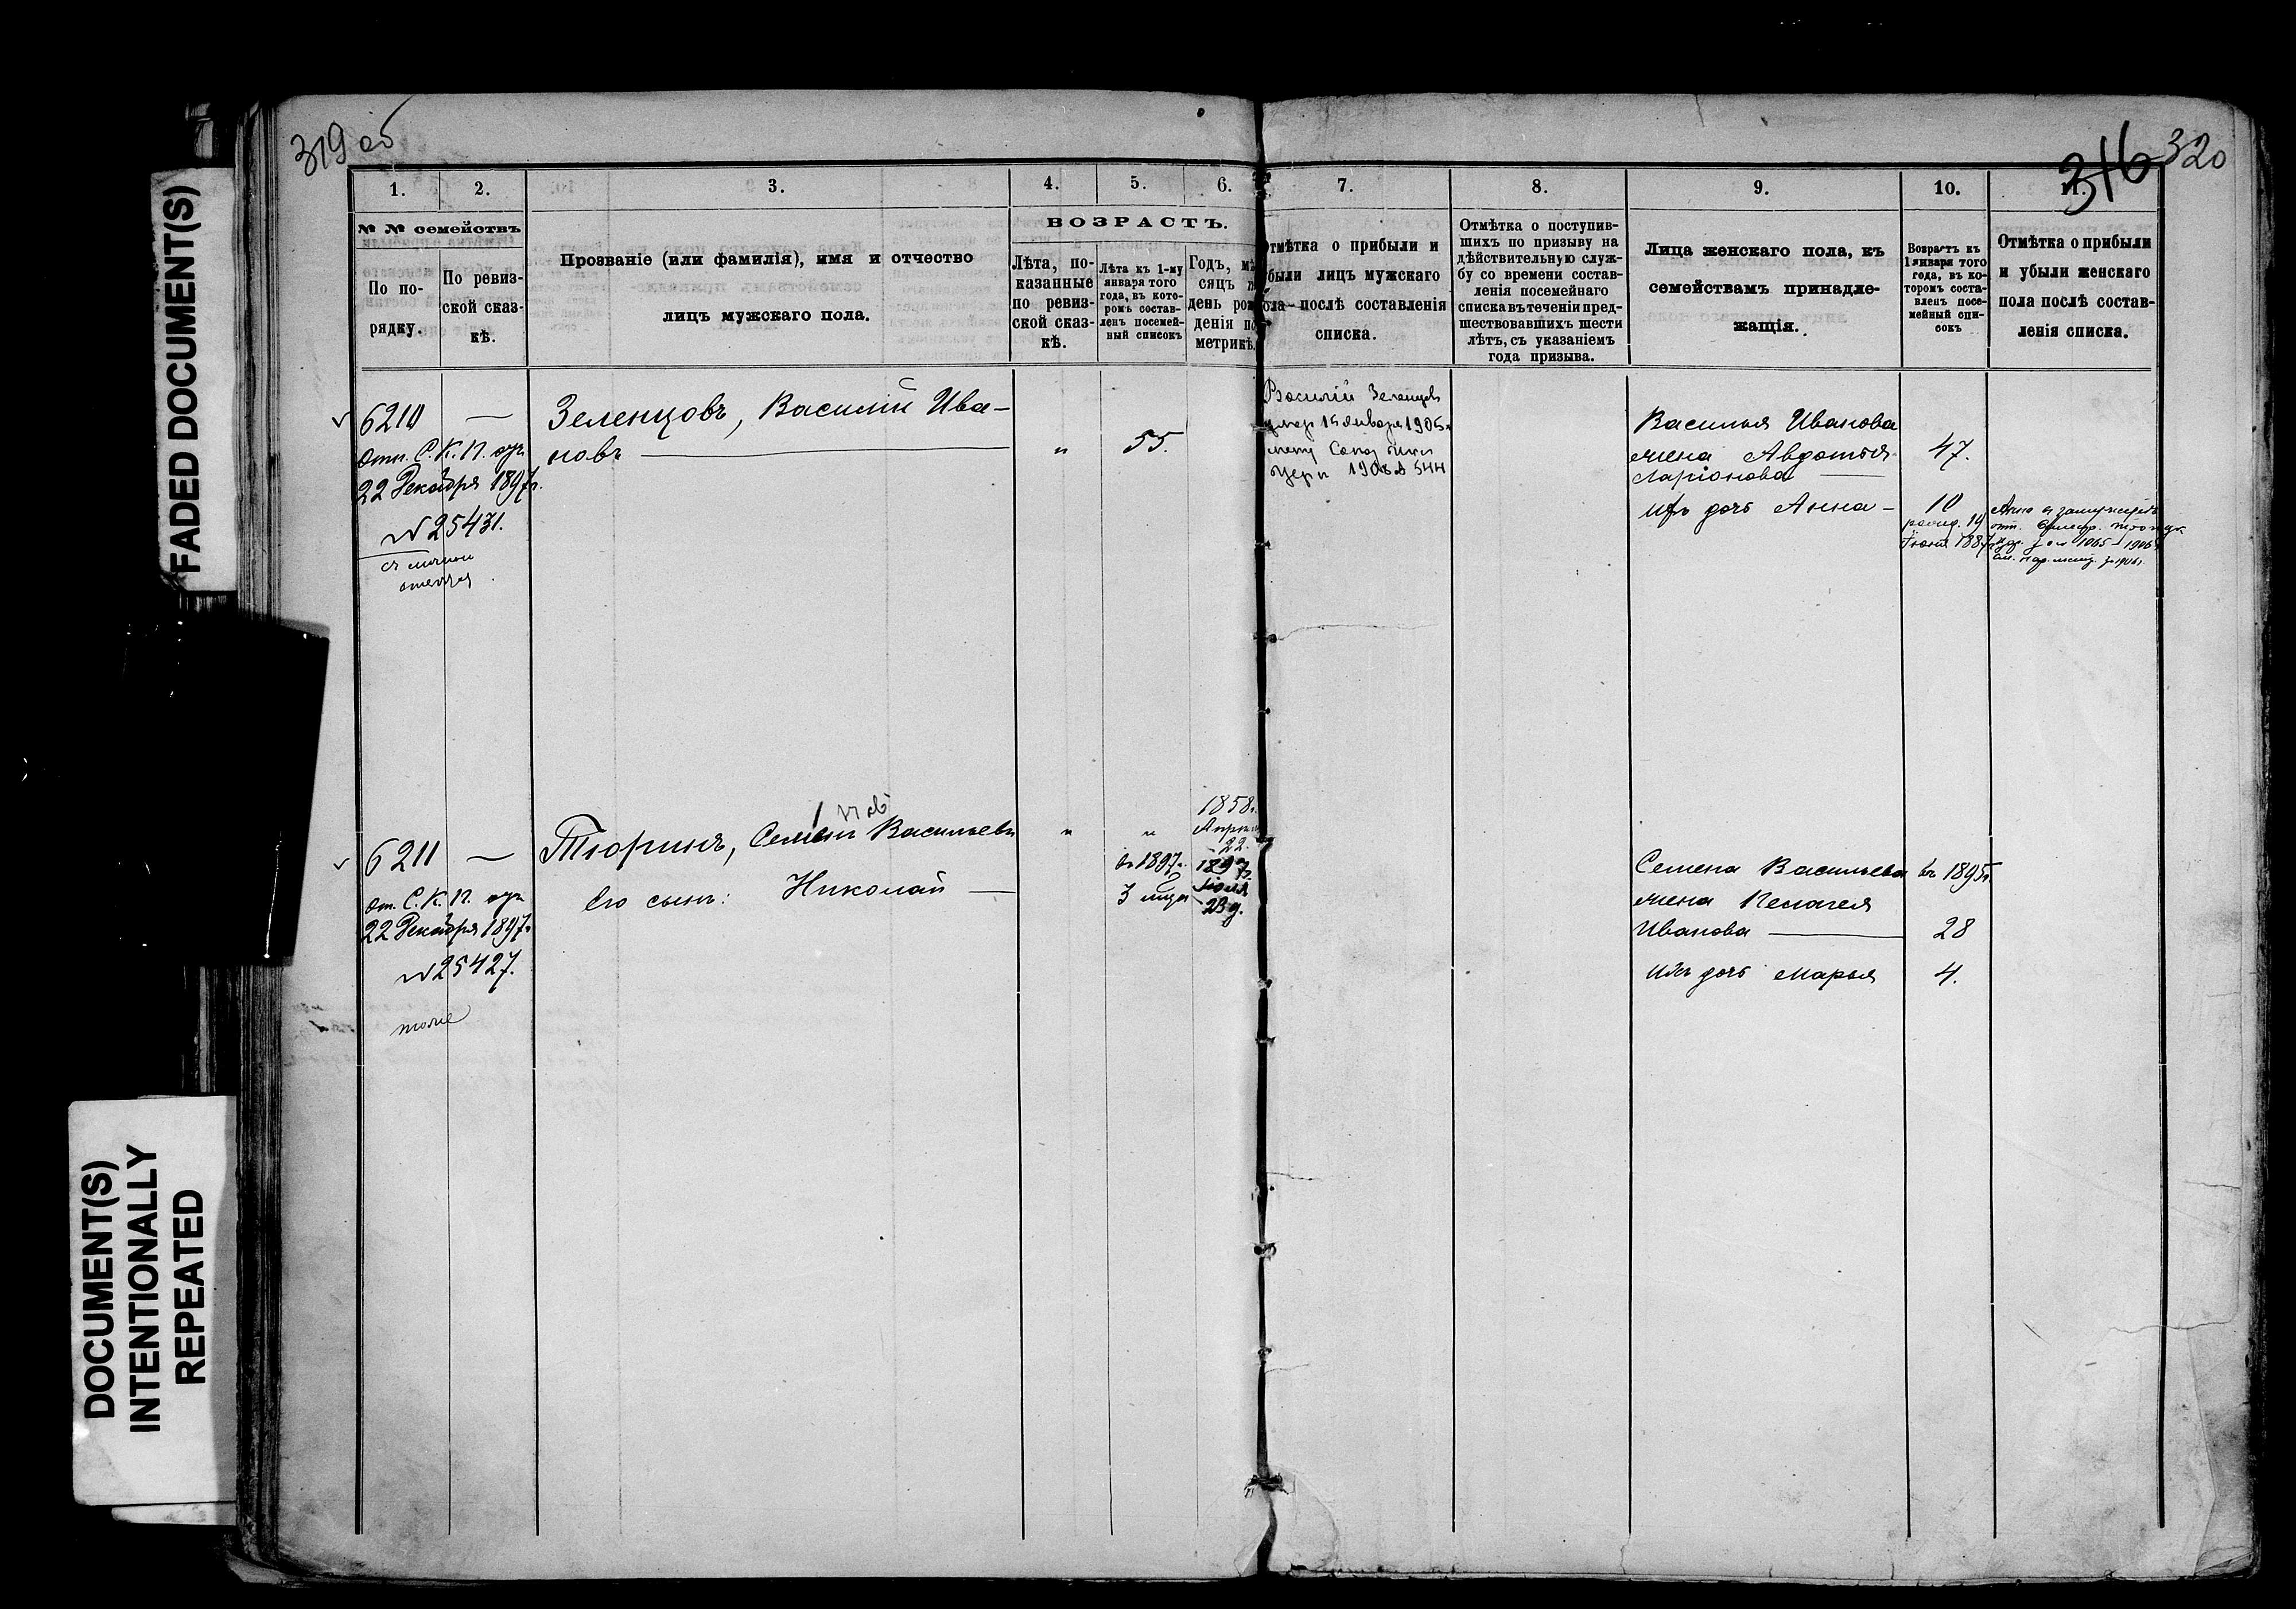 FADED DOCUMENT(S)
DOCUMENT(S)
INTENTIONALLY
REPEATED
319 об
316 320
1. 2. 3. 4. 5. 6. 7. 8. 9. 10. 11.
№ № семействъ
По по-
рядку.
По ревиз-
ской сказ-
кѣ.
Прозваніе (или фамилія), имя и отчество
лицъ мужскаго пола.
ВОЗРАСТЪ.
Лѣта, по-
казанные
по ревиз-
ской сказ-
кѣ.
Лѣта къ 1-му
января того
года, въ кото-
ромъ состав-
ленъ посемей-
ный списокъ
Годъ, мѣ
сяцъ и
день рож
денія по
метрикѣ.
Отмѣтка о прибыли и
убыли лицъ мужскаго
пола послѣ составленія
списка.
Отмѣтка о поступив-
шихъ по призыву на
дѣйствительную служ-
бу со времени состав-
ленія посемейнаго
списка въ теченіи пред-
шествовавшихъ шести
лѣтъ, съ указаніемъ
года призыва.
Лица женскаго пола, къ
семействамъ принадле-
жащія.
Возрастъ къ
1 января того
года, въ ко-
торомъ соста-
вленъ посе-
мейный спи-
сокъ
Отмѣтка о прибыли
и убыли женскаго
пола послѣ состав-
ленія списка.
6210 —
Отн. С. К. П. отъ
22 Декабря 1897г.
№ 25431.
Зеленцовъ, Василій Ива-
новъ
" 55.
Василій Зеленцовъ
умер 15 января 1905г
1906
544
Василья Иванова
жена Авдотья
Ларіонова
47.
ихъ дочь Анна —
10
рожд. 19
Іюня 1887г.
Анна
1905 - 1906
6211 —
От. С. К. П. отъ
22 Декабря 1897г.
№ 25427.
тоже
Тюринъ, Семенъ Васильевъ
" "
1858г.
Апрѣля
22.
Его сынъ: Николай —
въ 1897г.
3 мѣся
1897г.
Іюля
23 д.
Семена Васильева
жена Пелагея
Иванова
въ 1895г.
28
ихъ дочь Марья
4.